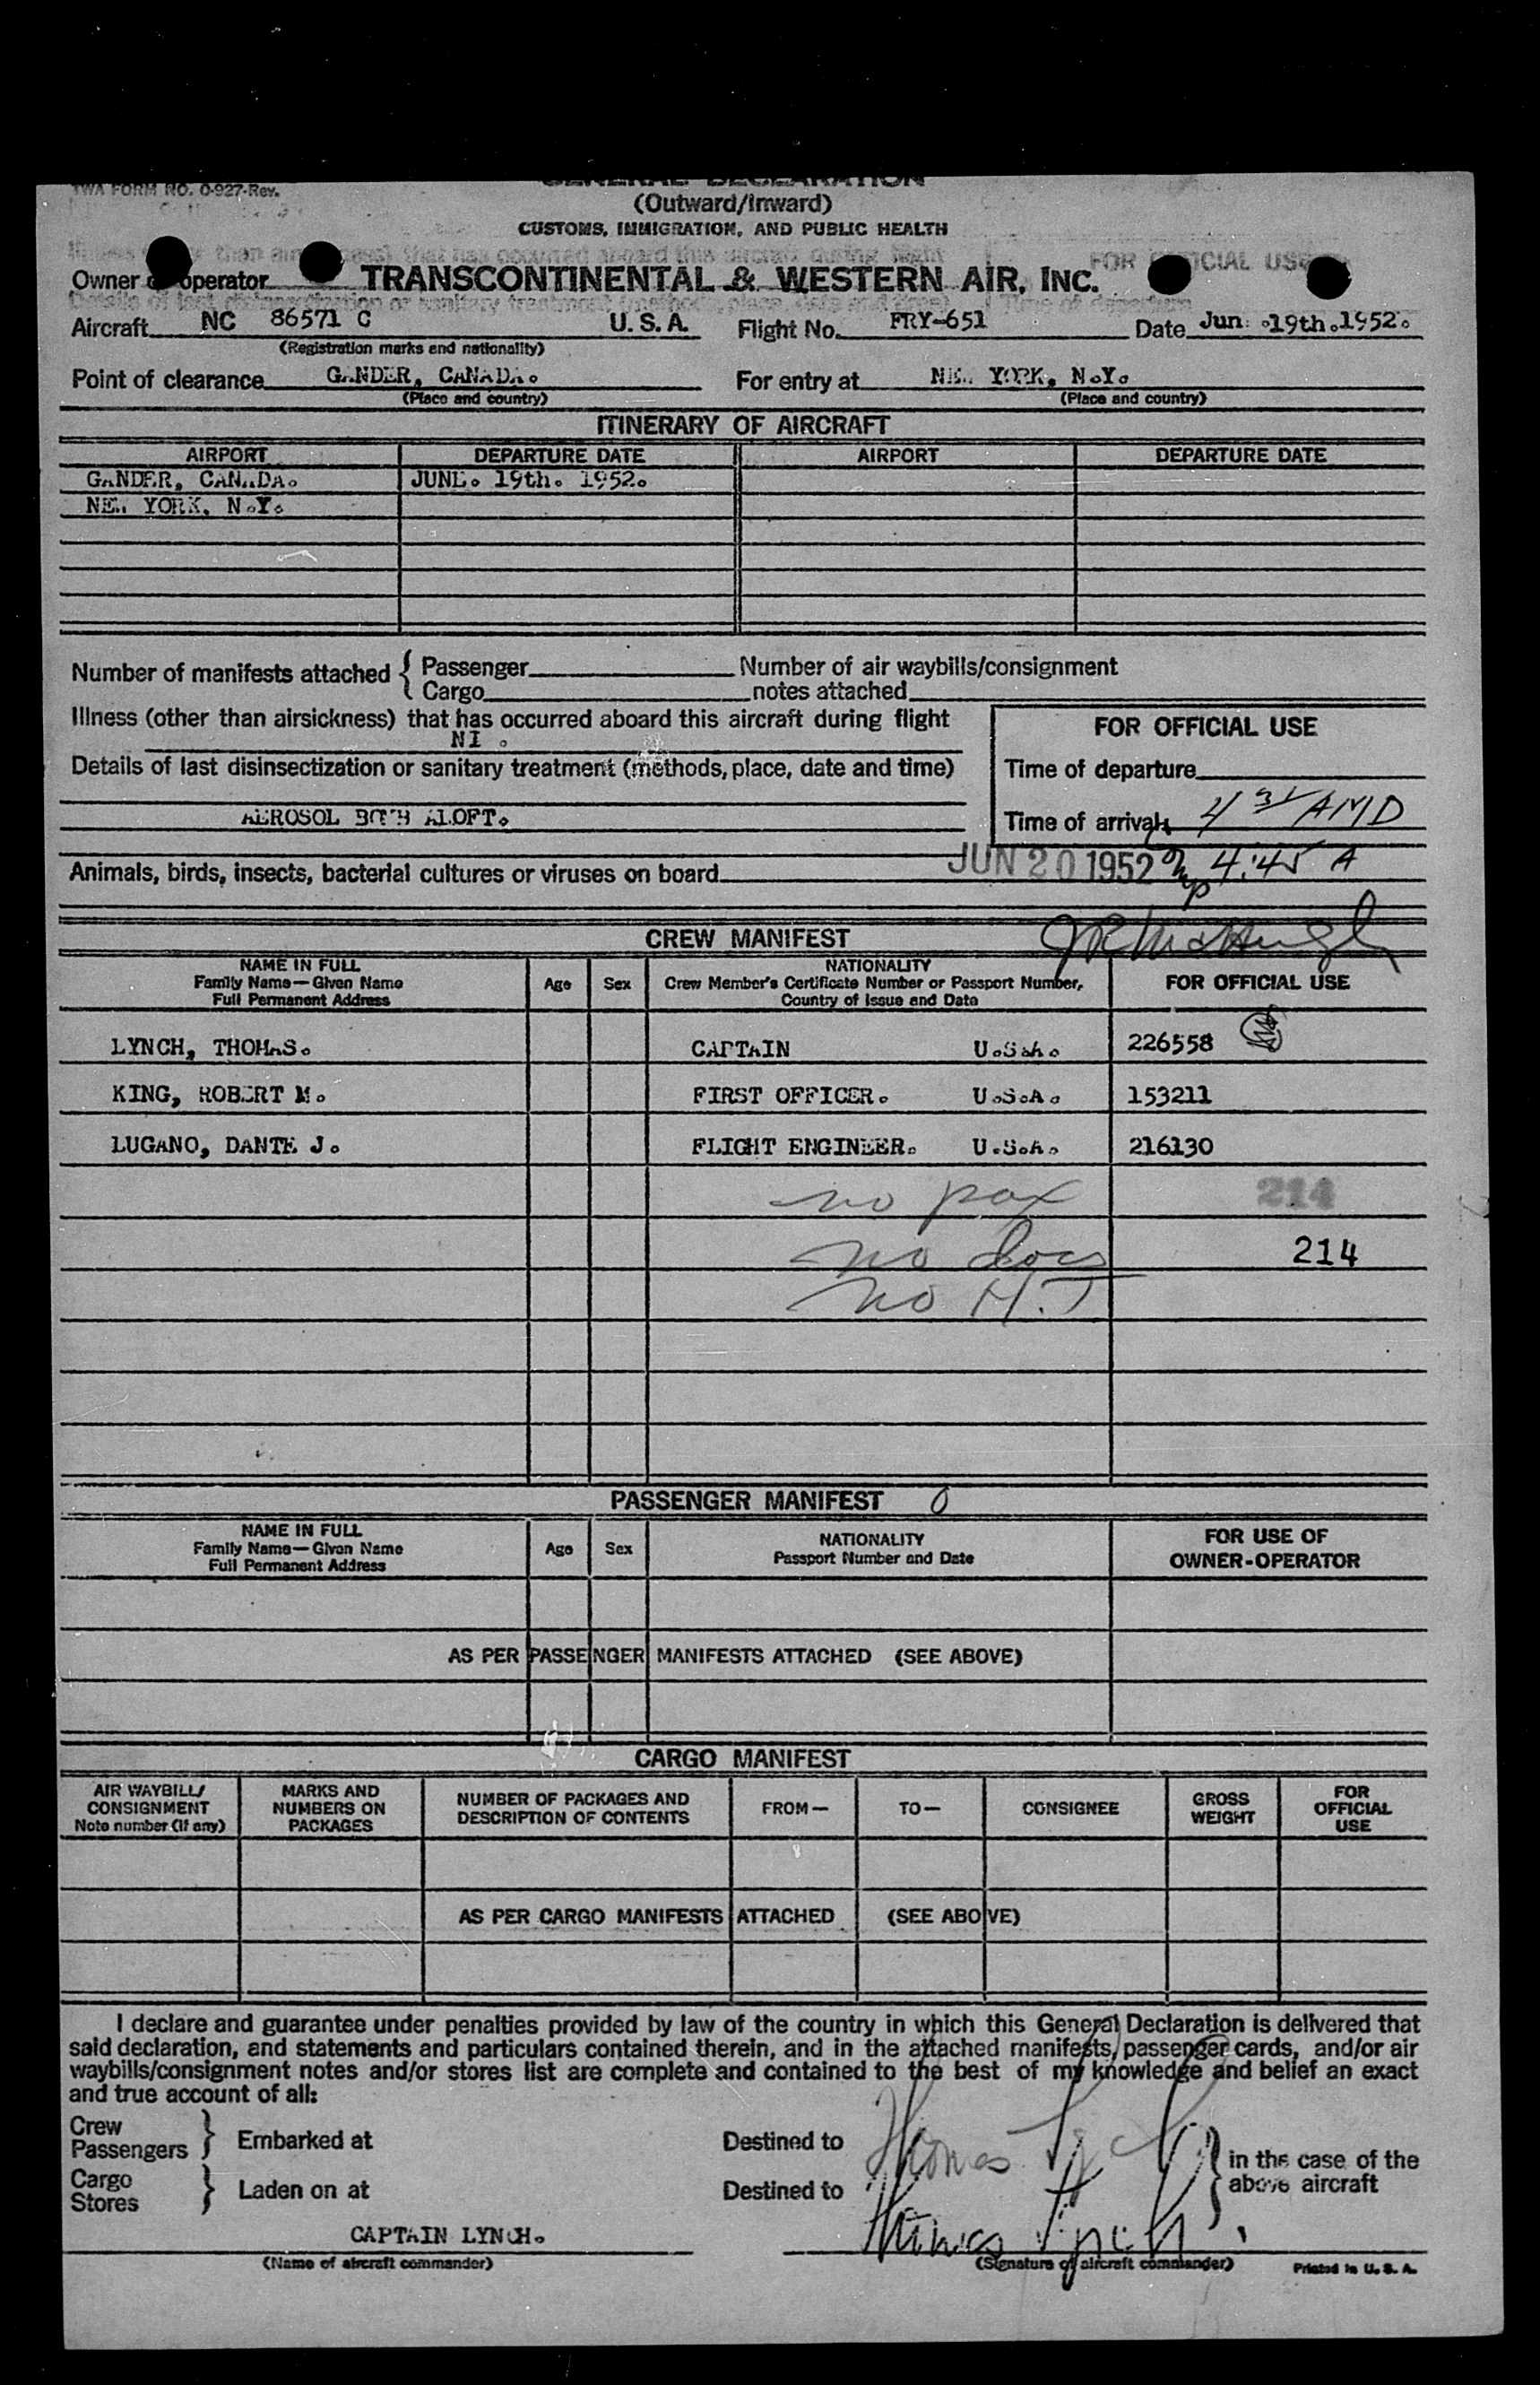 TWA FORM NO. 0-927-Rev.
GENERAL DECLARATION
(Outward/Inward)
CUSTOMS, IMMIGRATION, AND PUBLIC HEALTH
Owner or operator TRANSCONTINENTAL & WESTERN AIR, INC.
Aircraft NC 86571 C U. S. A. Flight No. FRY-651 Date Jun. 19th. 1952.
(Registration marks and nationality)
Point of clearance GANDER, CANADA. For entry at NEW YORK, N.Y.
(Place and country) (Place and country)
ITINERARY OF AIRCRAFT
AIRPORT DEPARTURE DATE AIRPORT DEPARTURE DATE
GANDER, CANADA. JUNE. 19th. 1952.
NEW YORK, N.Y.
Number of manifests attached { Passenger Number of air waybills/consignment
Cargo notes attached
Illness (other than airsickness) that has occurred aboard this aircraft during flight
NI .
Details of last disinsectization or sanitary treatment (methods, place, date and time)
AEROSOL BOMB ALOFT.
FOR OFFICIAL USE
Time of departure
Time of arrival
Animals, birds, insects, bacterial cultures or viruses on board
JUN 20 1952 4:45 A
CREW MANIFEST
NAME IN FULL
Family Name—Given Name
Full Permanent Address
Age Sex
NATIONALITY
Crew Member's Certificate Number or Passport Number,
Country of Issue and Date
FOR OFFICIAL USE
LYNCH, THOMAS. CAPTAIN U.S.A. 226558
KING, ROBERT M. FIRST OFFICER. U.S.A. 153211
LUGANO, DANTE J. FLIGHT ENGINEER. U.S.A. 216130
no pax 214
no docs 214
no H.T
PASSENGER MANIFEST 0
NAME IN FULL
Family Name—Given Name
Full Permanent Address
Age Sex
NATIONALITY
Passport Number and Date
FOR USE OF
OWNER-OPERATOR
AS PER PASSENGER MANIFESTS ATTACHED (SEE ABOVE)
CARGO MANIFEST
AIR WAYBILL/
CONSIGNMENT
Note number (if any)
MARKS AND
NUMBERS ON
PACKAGES
NUMBER OF PACKAGES AND
DESCRIPTION OF CONTENTS
FROM—
TO—
CONSIGNEE
GROSS
WEIGHT
FOR
OFFICIAL
USE
AS PER CARGO MANIFESTS ATTACHED (SEE ABOVE)
I declare and guarantee under penalties provided by law of the country in which this General Declaration is delivered that
said declaration, and statements and particulars contained therein, and in the attached manifests, passenger cards, and/or air
waybills/consignment notes and/or stores list are complete and contained to the best of my knowledge and belief an exact
and true account of all:
Crew
Passengers } Embarked at Destined to
Cargo
Stores } Laden on at Destined to
} in the case of the
above aircraft
Thomas Lynch
CAPTAIN LYNCH. Thomas Lynch
(Name of aircraft commander) (Signature of aircraft commander) Printed in U. S. A.